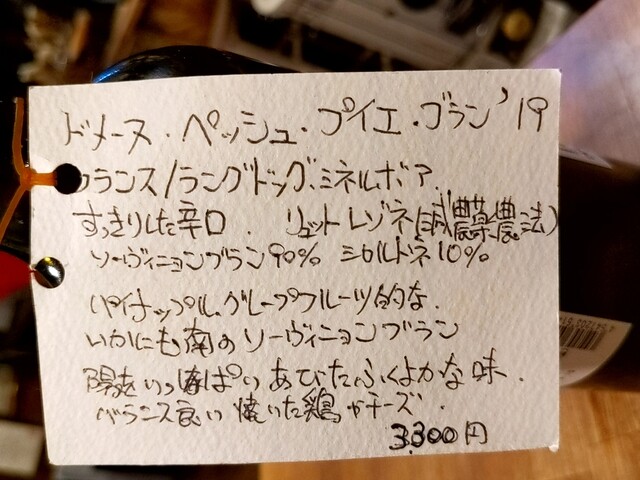 ドメーヌ・ペッシュ・プイエ・ブラン'19
フランス/ラングドック、ミネルボア
すっきりした辛口. リュット レゾネ(減農薬農法)
ソーヴィニョンブラン90% シャルドネ10%
パイナップル、グレープフルーツ的な、
いかにも南のソーヴィニョンブラン
陽をいっぱいあびたふくよかな味.
バランス良い 焼いた鶏やチーズ.
3,300円